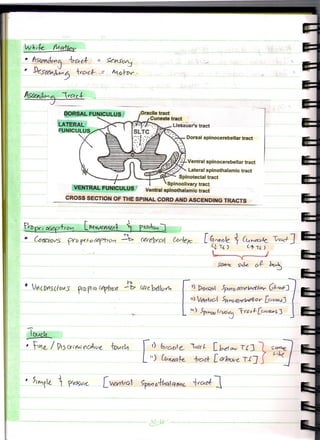 White Matter
• Ascending tract = Sensory
• Descending tract = Motor
Ascending Tract
DORSAL FUNICULUS
Gracile tract
Cuneate tract
LATERAL FUNICULUS
Lissauer's tract
SLTC
Dorsal spinocerebellar tract
Ventral spinocerebellar tract
Lateral spinothalamic tract
Spinotectal tract
Spinoolivary tract
VENTRAL FUNICULUS
Ventral spinothalamic tract
CROSS SECTION OF THE SPINAL CORD AND ASCENDING TRACTS
Proprioception [movement & position]
• Conscious proprioception → cerebral cortex [Gracile & Cuneate Tract]
(↓ T6) (↑ T6)
same side of body
• Unconscious proprioception → cerebellum
i) Dorsal Spinocerebellar
ii) Ventral Spinocerebellar [crossed]
iii) Spinoolivary Tract [crossed]
Touch
• Fine / Discriminative touch
i) Gracile Tract [below T6]
ii) Cuneate tract [above T6]
same side
• Simple & pressure [Ventral Spinothalamic tract]